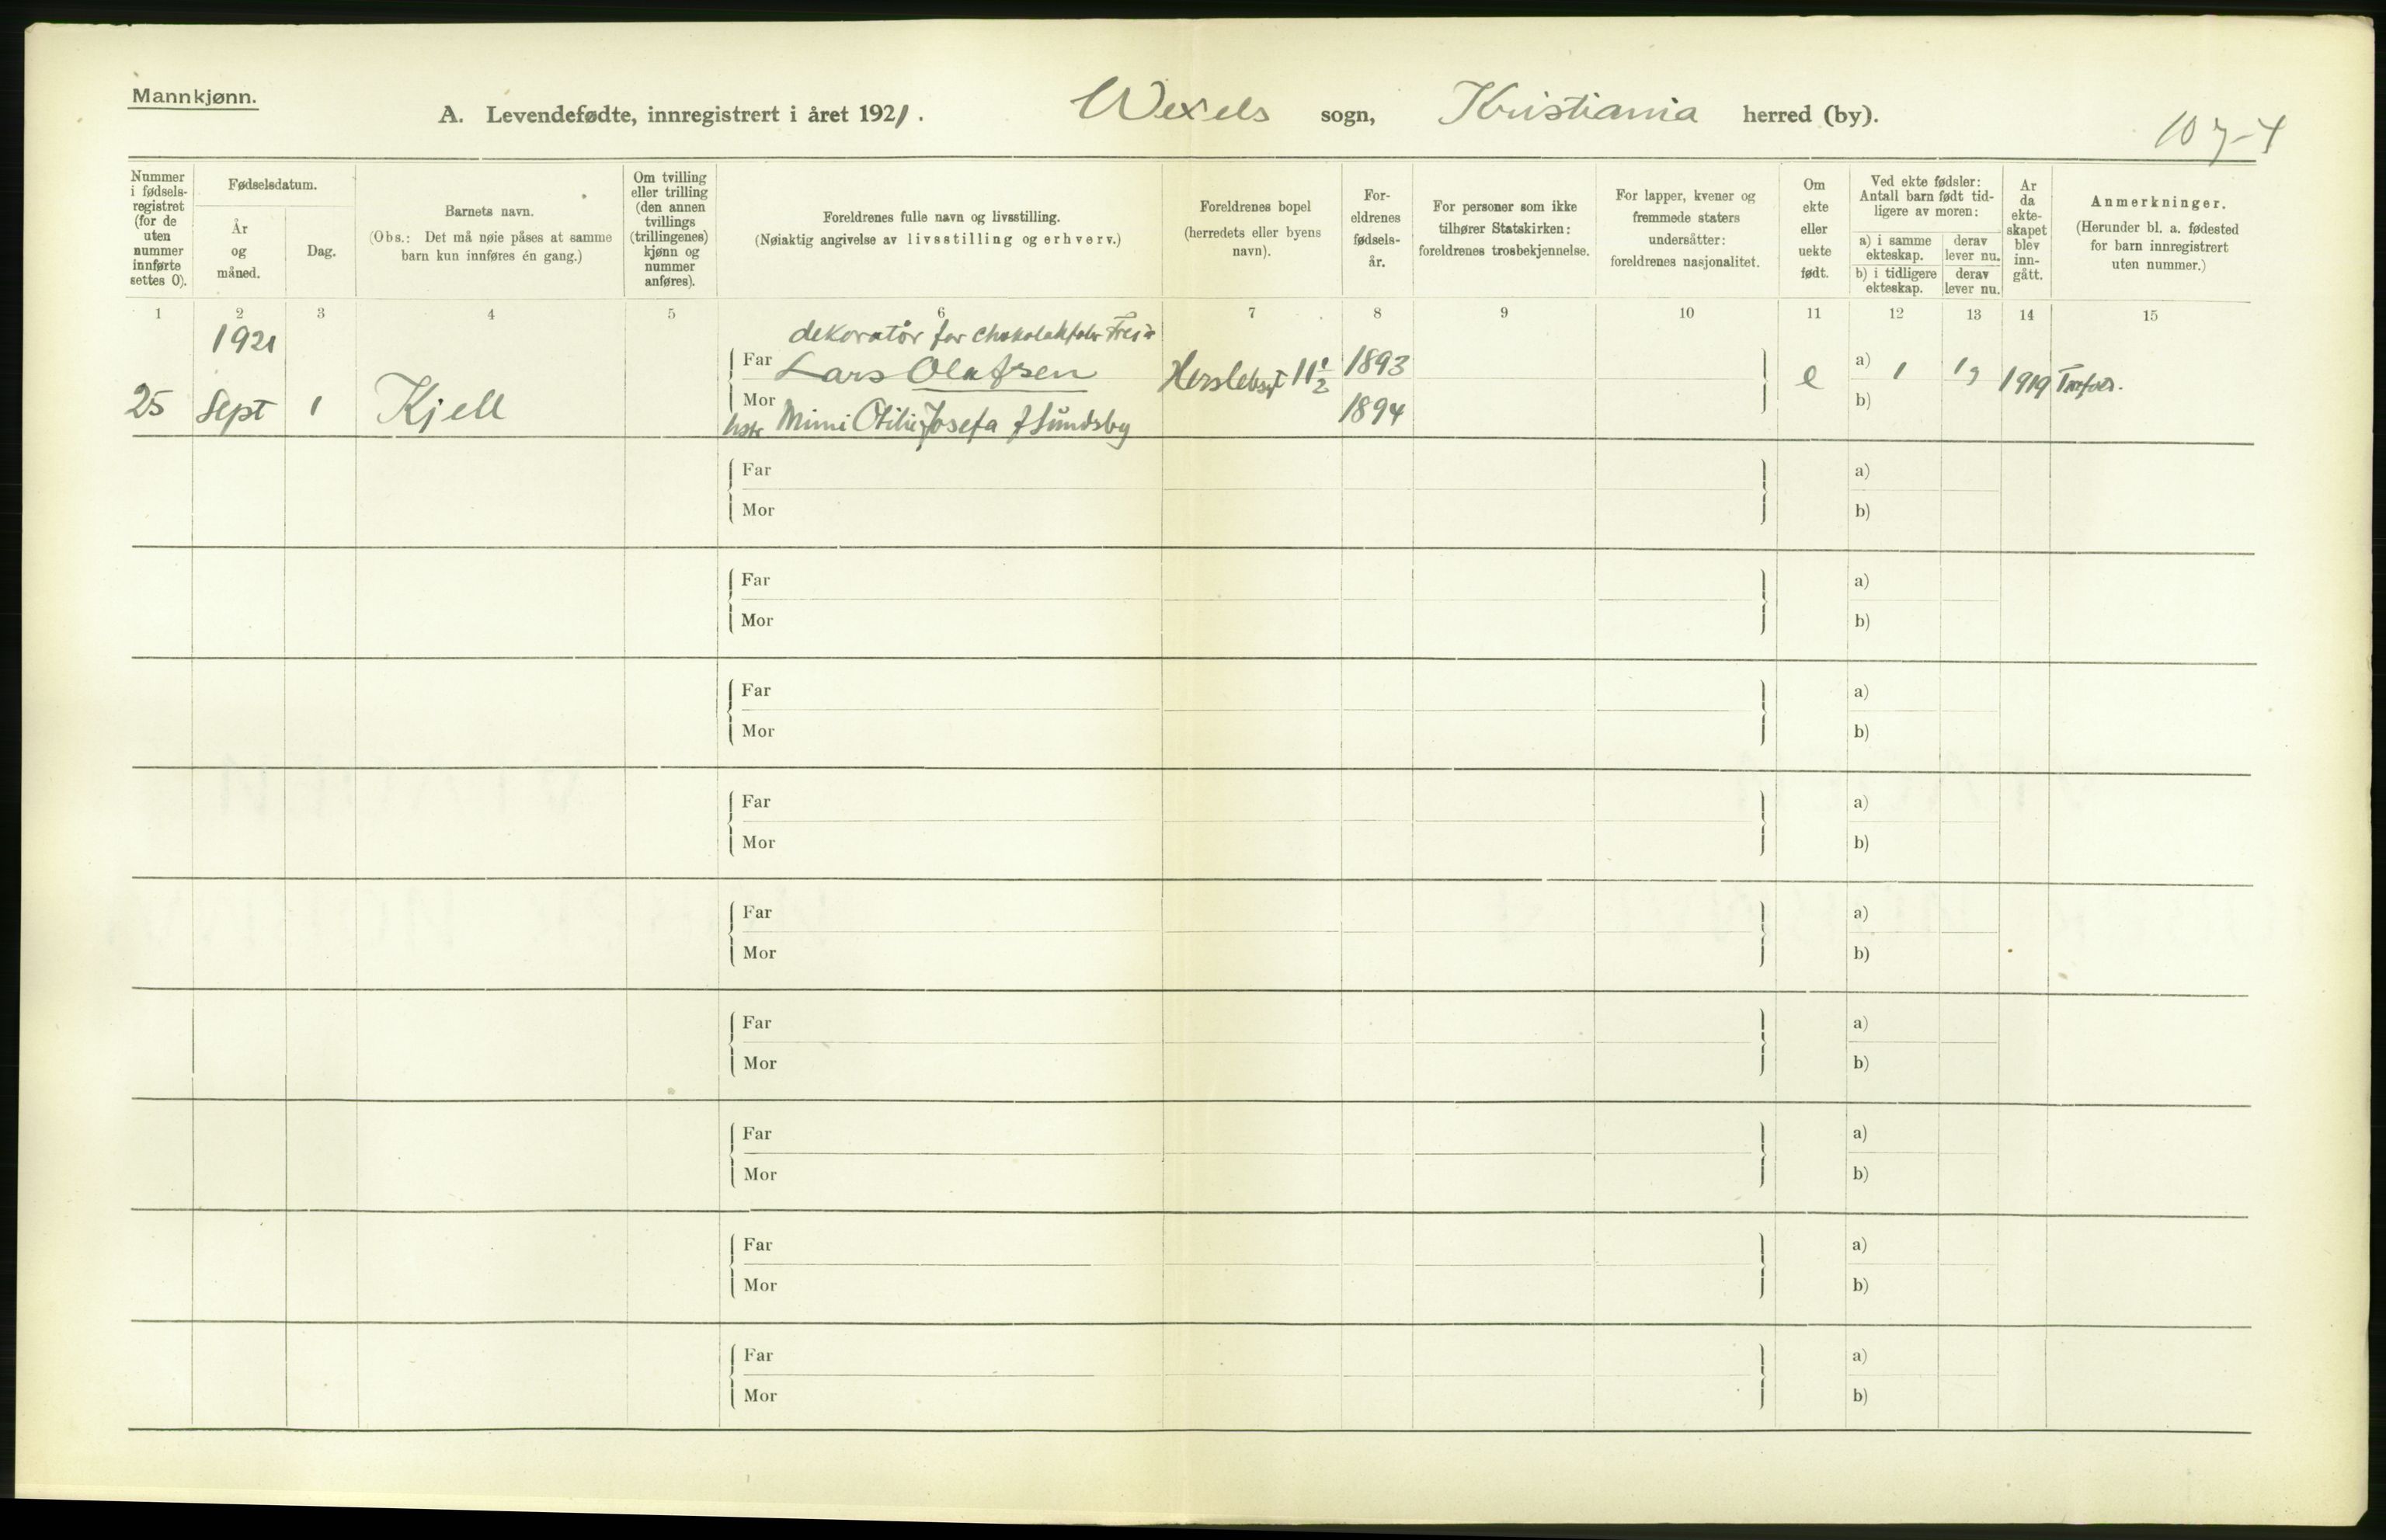 Mannkjønn.
A. Levendefødte, innregistrert i året 1921. Wexels sogn, Kristiania herred (by).
Nummer i fødsels-registret (for de uten nummer innførte settes 0).
Fødselsdatum.
År og måned.
Dag.
Barnets navn.
(Obs.: Det må nøie påses at samme barn kun innføres én gang.)
Om tvilling eller trilling (den annen tvillings (trillingenes) kjønn og nummer anføres).
Foreldrenes fulle navn og livsstilling.
(Nøiaktig angivelse av livsstilling og erhverv.)
Foreldrenes bopel (herredets eller byens navn).
For-eldrenes fødsels-år.
For personer som ikke tilhører Statskirken: foreldrenes trosbekjennelse.
For lapper, kvener og fremmede staters undersåtter: foreldrenes nasjonalitet.
Om ekte eller uekte født.
Ved ekte fødsler: Antall barn født tid-ligere av moren:
a) i samme ekteskap.
derav lever nu.
b) i tidligere ekteskap.
derav lever nu.
År da ekte-skapet blev inn-gått.
Anmerkninger.
(Herunder bl. a. fødested for barn innregistrert uten nummer.)
1 2 3 4 5 6 7 8 9 10 11 12 13 14 15
1921 dekoratør for
Far Lars Olafsen 1893 a) 1
25 Sept 1 Kjell e 1919
Mor b)
Mimi Josefa f Sundsby 1894
Far a)
Mor b)
Far a)
Mor b)
Far a)
Mor b)
Far a)
Mor b)
Far a)
Mor b)
Far a)
Mor b)
Far a)
Mor b)
Far a)
Mor b)
Far a)
Mor b)